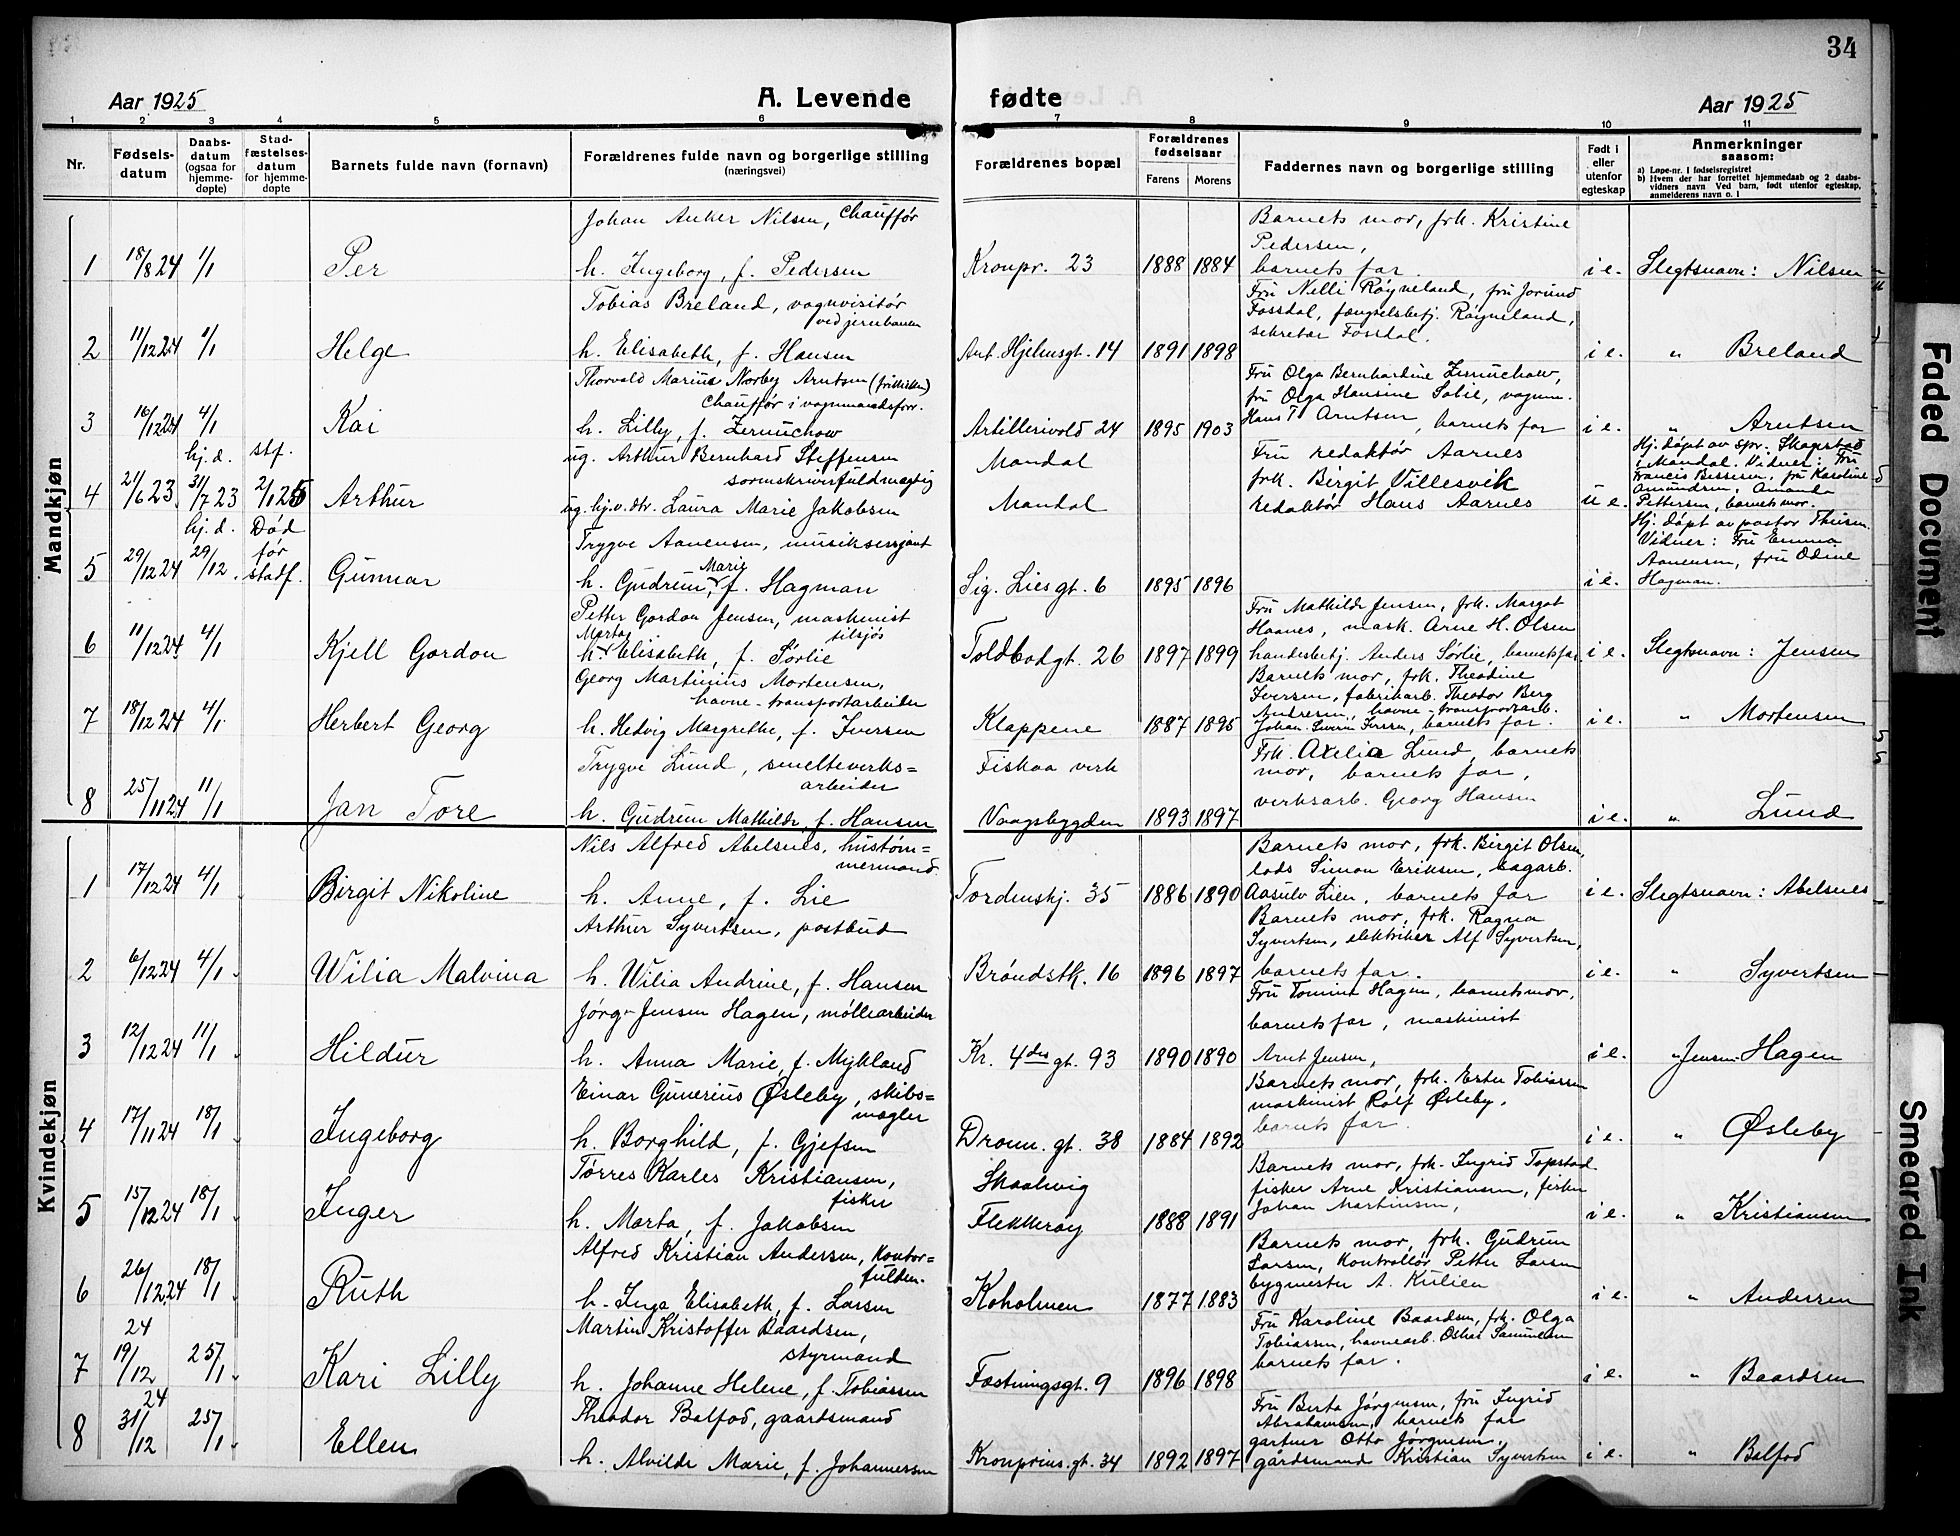 34
Aar 1925
A. Levende fødte
Aar 1925
1 2 3 4 5 6 7 8 9 10 11
Nr.
Fødsels-
datum
Daabs-
datum
(ogsaa for
hjemme-
døpte)
Stad-
fæstelses-
datum
for hjemme-
døpte
Barnets fulde navn (fornavn)
Forældrenes fulde navn og borgerlige stilling
(næringsvei)
Forældrenes bopæl
Forældrenes
fødselsaar
Farens Morens
Faddernes navn og borgerlige stilling
Født i
eller
utenfor
egteskap
Anmerkninger
saasom:
a) Løpe-nr. i fødselsregistret
b) Hvem der har forrettet hjemmedaab og 2 daabs-
vidners navn Ved barn, født utenfor egteskap,
anmelderens navn o. l
Mandkjøn
1 18/8 24 1/1 Per
Johan Anker Nilsen, Chauffør
h. Ingeborg, f. Pedersen
Kronpr. 23 1888 1884
Barnets mor, frk. Kristine
Pedersen,
barnets far.
i e. Slegtsnavn: Nilsen
2 11/12 24 1/1 Helge
Tobias Breland, vognvisitør
ved jernbanen
h. Elisabeth, f. Hansen
Ant. Hjelmsgt. 14 1891 1898
Fru Nelli Røyneland, fru Jorund
Fossdal, fængselsbetj. Røyneland,
sekretær Fossdal.
i e. " Breland
3 16/12 24 4/1 Kai
Thorvald Marius Norby Arntsen
Chauffør i vognmandsforr.
h. Lilly, f. Zernuchow
Artillerivold 24 1895 1903
Fru Olga Bernhardine Zernuchow,
fru Olga Hansine Solie, vognm.
Hans T Arntsen, barnets far
i e. " Arntsen
4 21/6 23. hj. d. 31/7 23 stf. 2/1 25 Arthur
ug. Arthur Bernhard Steffensen
sorenskriverfuldmægtig
ug. hj.v. dtr. Laura Marie Jakobsen
Mandal
Mandal
Fru redaktør Aarnes
frk. Birgit Villesvik
redaktør Hans Aarnes
u e.
Hj. døpt av spr. Skagestad
i Mandal. Vidner: Fru
Francis Bissesen, fru Karoline
Amundsen, Amanda
Pettersen, barnets mor.
5 29/12 24 hj. d. 29/12. Død
før
stadf. Gunnar
Trygve Aanensen, musiksersjant
h. Gudrun Marie, f. Hagman
Sig. Lies gt. 6 1895 1896
i e.
Hj. døpt av pastor Thurn.
Vidner: Fru Emma
Aanensen, fru Odine
Hagman.
6 11/12 24 4/1 Kjell Gordon
Petter Gordon Jensen, maskinist
tilsjøs
h. Marta Elisabeth, f. Sørlie
Toldbodgt. 26 1897 1899
Fru Mathilde Jensen, frk. Margot
Haanes, mask. Arne H. Olsen
handesbetj. Anders Sørlie, barnets far
i e. Slegtsnavn: Jensen
7 18/12 24 4/1 Herbert Georg
Georg Martinius Mortensen,
havne-transportarbeider
h. Hedvig Margrethe, f. Iversen
Klappene 1887 1895
Barnets mor, frk. Theodine
Iversen, fabrikarb. Theodor Berg
Andresen, havne-transportarb.
Johan Severin Iversen, barnets far.
i e. " Mortensen
8 25/11 24 11/1 Jan Tore
Trygve Lund, smelteverks=
arbeider
h. Gudrun Mathilde, f. Hansen
Fiskaa verk
Vaagsbygden 1893 1897
Frk. Axelia Lund, barnets
mor, barnets far,
verksarb. Georg Hansen
i e. " Lund
Kvindekjøn
1 17/12 24 4/1 Birgit Nikoline
Nils Alfred Abelsnes, hustøm=
mermand
h. Anne, f. Lie
Tordenskj. 35 1886 1890
Barnets mor, frk. Birgit Olsen,
lods Simon Eriksen, bagarb.
Aasulv Lien, barnets far
i e. Slegtsnavn: Abelsnes
2 6/12 24 4/1 Wilia Malvina
Arthur Syvertsen, postbud
h. Wilia Andrine, f. Hansen
Brøndstk. 16 1896 1897
Barnets mor, frk. Ragna
Syvertsen, elektriker Alf Syvertsen,
barnets far.
i e. " Syvertsen
3 12/12 24 11/1 Hildur
Jørg. Jensen Hagen, møllearbeider
h. Anna Marie, f. Mykland
Kr. 4des gt. 93 1890 1890
Fru Tomine Hagen, barnets mor,
barnets far, maskinist
Arnt Jensen,
i e. " Jensen Hagen
4 17/11 24 18/1 Ingeborg
Einar Gunerius Øsleby, skibs=
mægler
h. Borghild, f. Gjefsen
Dronn. gt. 38 1884 1892
Barnets mor, frk. Ester Tobiassen
maskinist Rolf Øsleby.
barnets far.
i e. " Øsleby
5 15/12 24 18/1 Inger
Tørres Karles Kristiansen,
fisker
h. Marta, f. Jakobsen
Skaalevig
Flekkerøy 1888 1891
Barnets mor, frk. Ingrid Topstad
fisker Arne Kristiansen, fisker
Johan Martinsen,
i e. " Kristiansen
6 26/12 24 18/1 Ruth
Alfred Kristian Andersen, kontor=
fuldm.
h. Inga Elisabeth, f. Larsen
Koholmen 1877 1883
Barnets mor, frk. Gudrun
Larsen, kontrollør Petter Larsen
bygmester A. Kulien
i e. " Andersen
7 24 19/12 25/1 Kari Lilly
Martin Kristoffer Baardsen,
styrmand
h. Johanne Helene, f. Tobiassen
Fæstningsgt. 9 1896 1898
Fru Karoline Baardsen, frk. Olga
Tobiassen, havnearb. Oskar Samuelsen
barnets far.
i e. " Baardsen
8 24 31/12 25/1 Ellen
Theodor Balfod, gaardsmand
h. Alvilde Marie, f. Johannessen
Kronprins. gt. 34 1892 1897
Fru Berta Jørgensen, fru Ingrid
Abrahamsen, barnets far
gartner Otto Jørgensen,
gårdsmand Kristian Syvertsen
i e. " Balfod
Faded Document
Smeared Ink